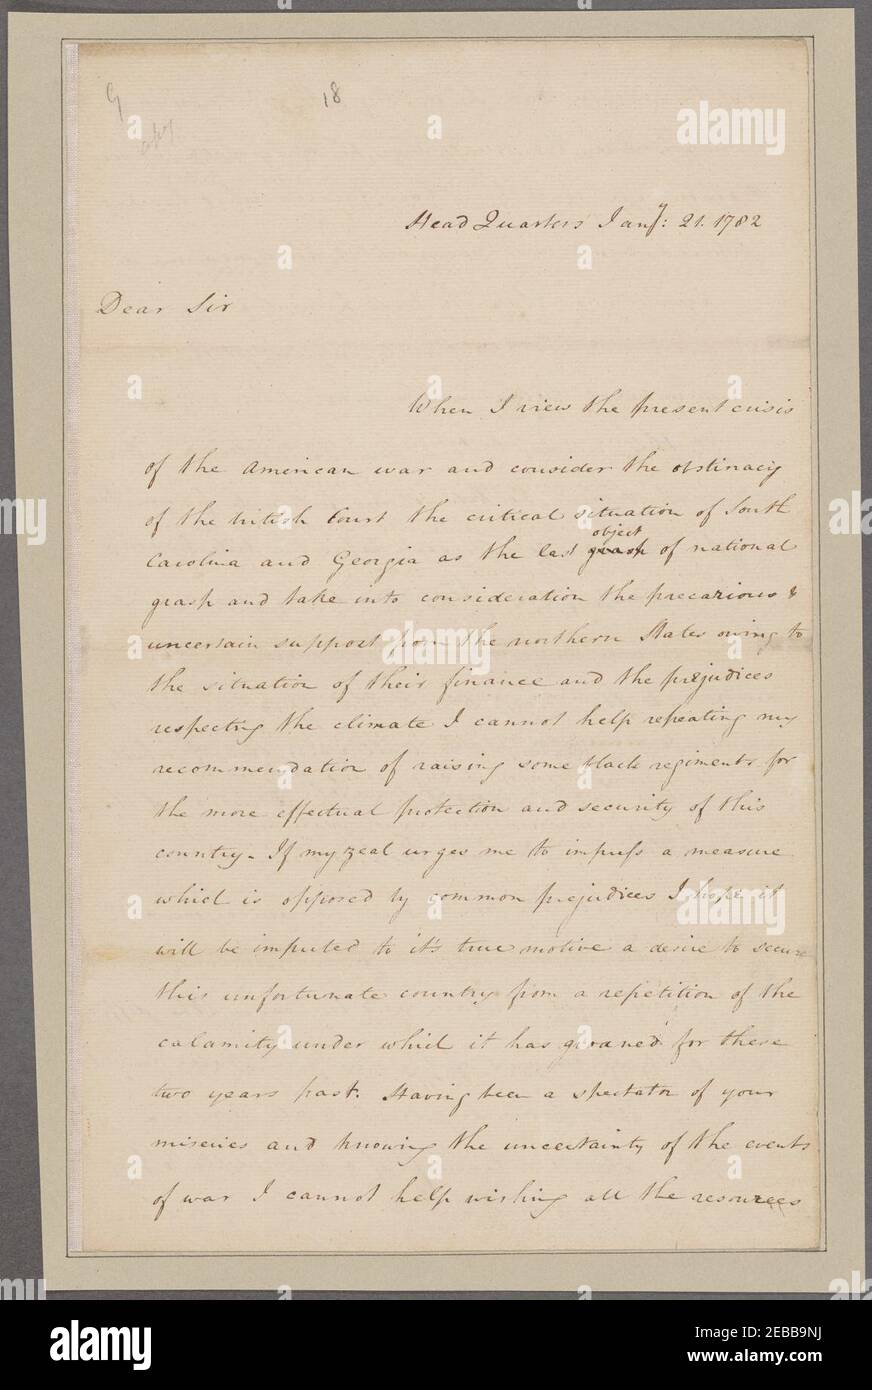 G
18
copy
Head Quarters Jany: 21. 1782
Dear Sir
When I view the present crisis
of the American war and consider the obstinacy
of the british Court the critical situation of South
object
Carolina and Georgia as the last grasp of national
grasp and take into consideration the precarious &
uncertain support from the northern States owing to
the situation of their finance and the prejudices
respecting the climate I cannot help repeating my
recommendation of raising some black regiments for
the more effectual protection and security of this
country. If my zeal urges me to impress a measure
which is opposed by common prejudices I hope it
will be imputed to it's true motive a desire to secure
this unfortunate country from a repetition of the
calamity under which it has groaned for these
two years past. Having been a spectator of your
miseries and knowing the uncertainty of the events
of war I cannot help wishing all the resources
alamy
Image ID: 2EBB9NJ
www.alamy.com